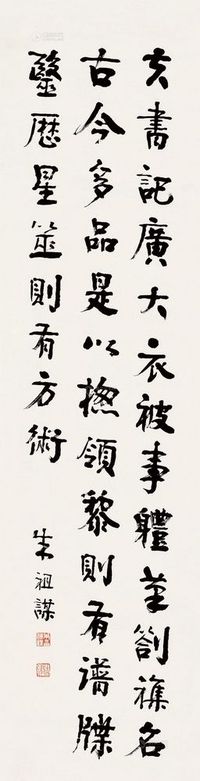 夫書記廣大衣被事軆筆劄襍名
古今多品是以摠領黎則有譜牒
毉歷星筮則有方術
朱祖謀